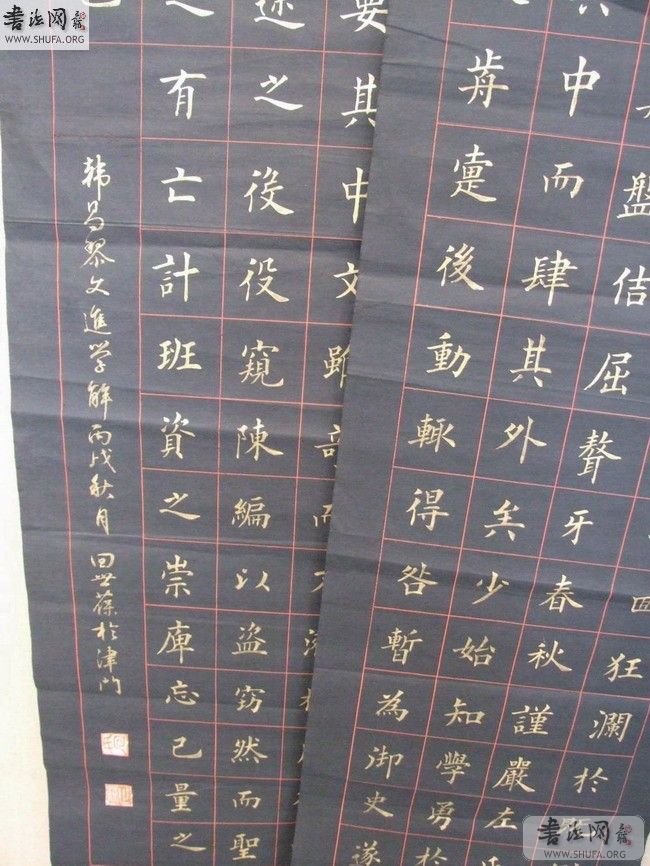 書法网
WWW.SHUFA.ORG
回狂瀾於
盤佶屈聱牙春秋謹嚴左
中而肆其外矣少始知學勇於
前疐後動輒得咎暫為御史遂
要其中文雖
途之役役窺陳編以盗窃然而聖
之有亡計班資之崇庳忘己量之
韩昌黎文進学解丙戌秋月回世葆於津门
書法网
WWW.SHUFA.ORG